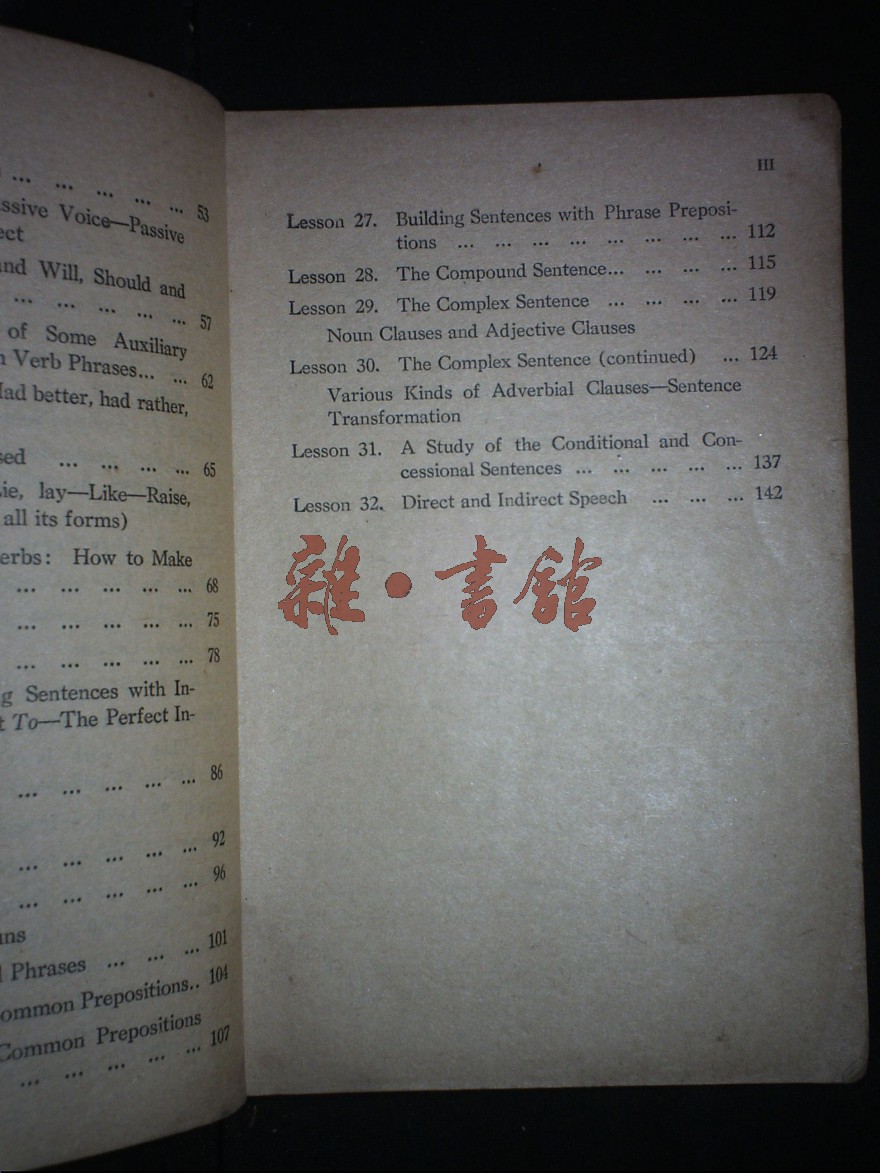 ... ... ... ... ... 53
Passive Voice—Passive
and Will, Should and
... ... ... ... ... 57
of Some Auxiliary
Verb Phrases... ... 62
Had better, had rather,
... ... ... ... 65
lay—Like—Raise,
all its forms)
How to Make
... ... ... ... ... 68
... ... ... ... ... 75
... ... ... ... ... 78
Sentences with In-
To—The Perfect In-
... ... ... ... ... 86
... ... ... ... ... 92
... ... ... ... ... 96
Phrases ... ... ... 101
Common Prepositions.. 104
Common Prepositions
... ... ... ... ... 107
III
Lesson 27. Building Sentences with Phrase Preposi-
tions ... ... ... ... ... ... ... ... 112
Lesson 28. The Compound Sentence... ... ... ... 115
Lesson 29. The Complex Sentence ... ... ... ... 119
Noun Clauses and Adjective Clauses
Lesson 30. The Complex Sentence (continued) ... 124
Various Kinds of Adverbial Clauses—Sentence
Transformation
Lesson 31. A Study of the Conditional and Con-
cessional Sentences ... ... ... ... ... 137
Lesson 32. Direct and Indirect Speech ... ... ... 142
雜·書館